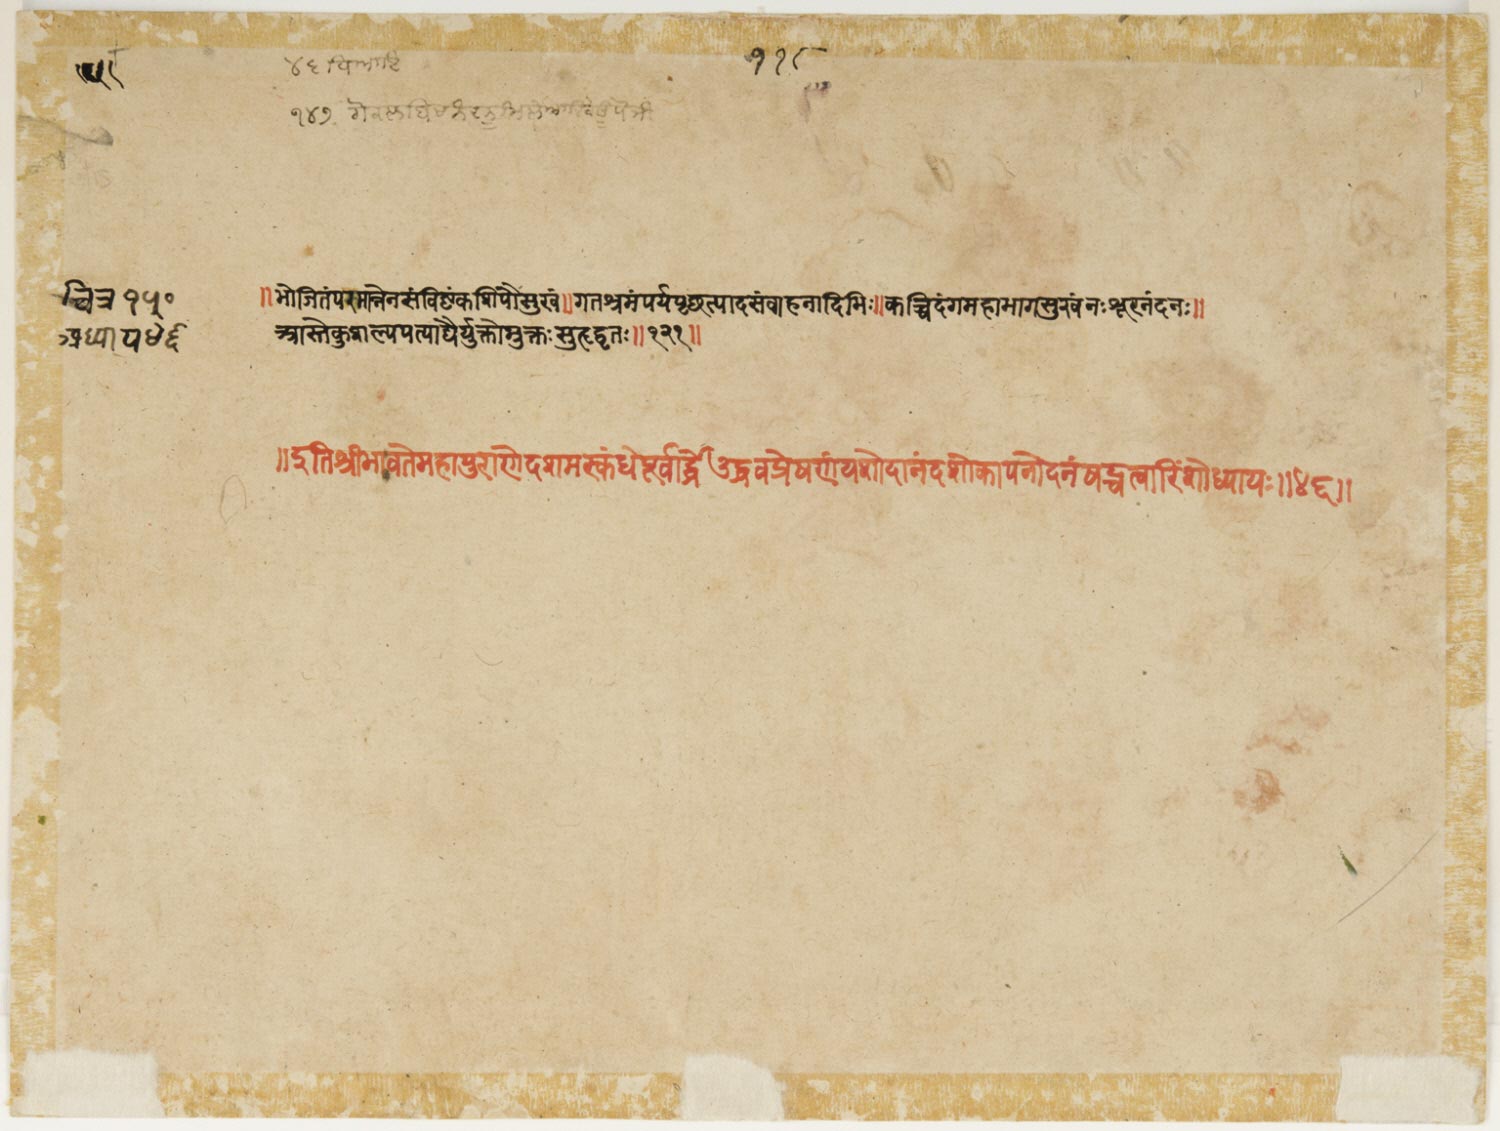 ११८
४६ धिआइ
१४७
चित्र १५०
अध्याय ४६
॥भोजितंपरमान्नेनसंविष्टंकशिपौसुखं॥गतश्रमंपर्यपृच्छत्पादसंवाहनादिभिः॥कच्चिदंगमहाभागसुखंनःशूरनंदनः॥
आस्तेकुशल्यपत्याद्यैर्युक्तोमुक्तःसुहृद्वृतः॥१२१॥
॥इतिश्रीभागवतेमहापुराणेदशमस्कंधेपूर्वार्द्धेउद्धवप्रेषणंयशोदानंदशोकापनोदनंषट्चत्वारिंशोध्यायः॥४६॥